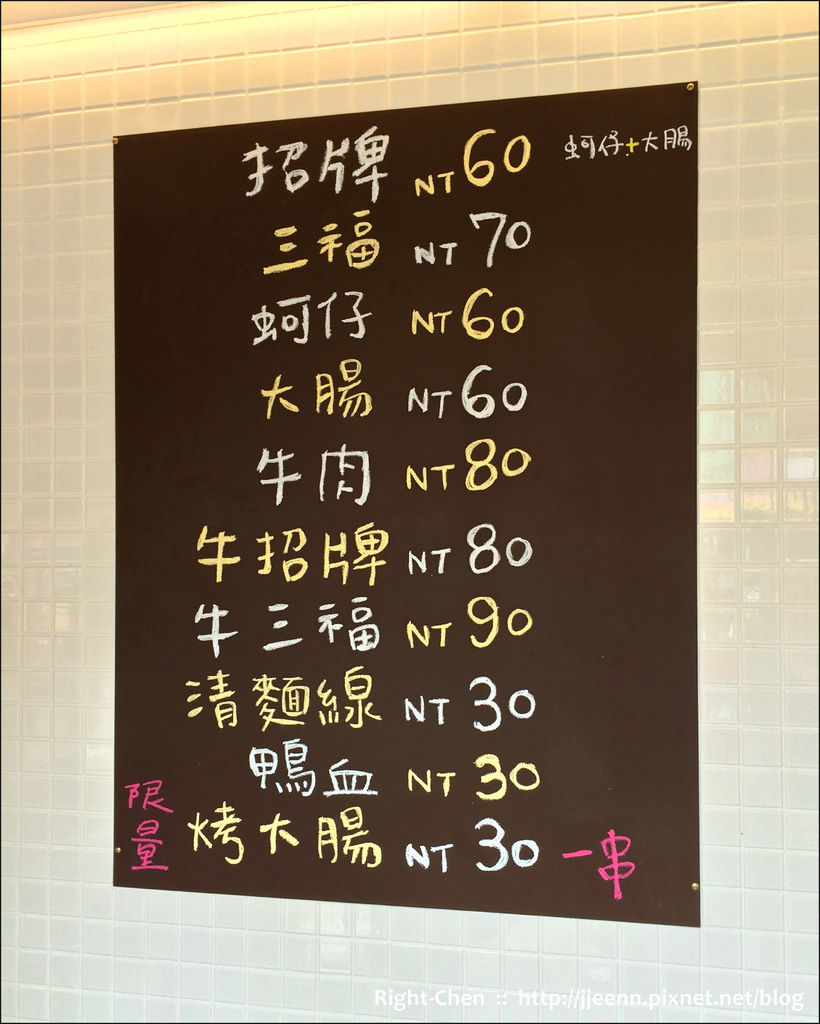 招牌 NT 60 蚵仔+大腸
三福 NT 70
蚵仔 NT 60
大腸 NT 60
牛肉 NT 80
牛招牌 NT 80
牛三福 NT 90
清麵線 NT 30
鴨血 NT 30
限量 烤大腸 NT 30 一串
Right-Chen :: http://jjeenn.pixnet.net/blog